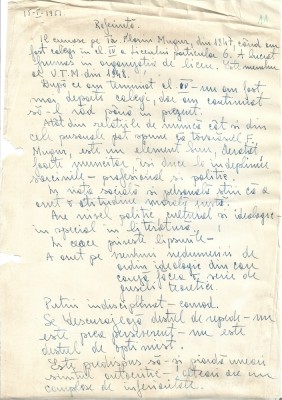 15-I-1951.
Referință.
Îl cunosc pe Tov. Florin Mugur, din 1947, când am
fost colegi în cl. IV a Liceului particular 6. A lucrat
frumos în organizația de liceu. Este membru
al U.T.M. din 1948.
După ce am terminat cl. IV - nu am fost
mai departe colegi, dar am continuat
să-l văd până în prezent.
Atât din relațiile de muncă cât și din
cele personale pot spune că tovarășul
Mugur, este un element bun, devotat
foarte muncitor, își duce la îndeplinire
sarcinile - profesional și politic.
În viața socială și personală știu că a
avut o atitudine morală justă.
Are nivel politic cultural și ideologic -
în special în literatură.
În ceea ce privește lipsurile -
A avut pe nemulțumiri de
ordin ideologic din care
cauză făcea o serie de
greșeli teoretice.
Puțin indisciplinat - comod.
Se descurajează destul de repede - nu
este prea perseverent - nu este
destul de optimist.
Este predispus să-și piardă uneori
simțul autocritic - alteori are un
complexe de inferioritate.